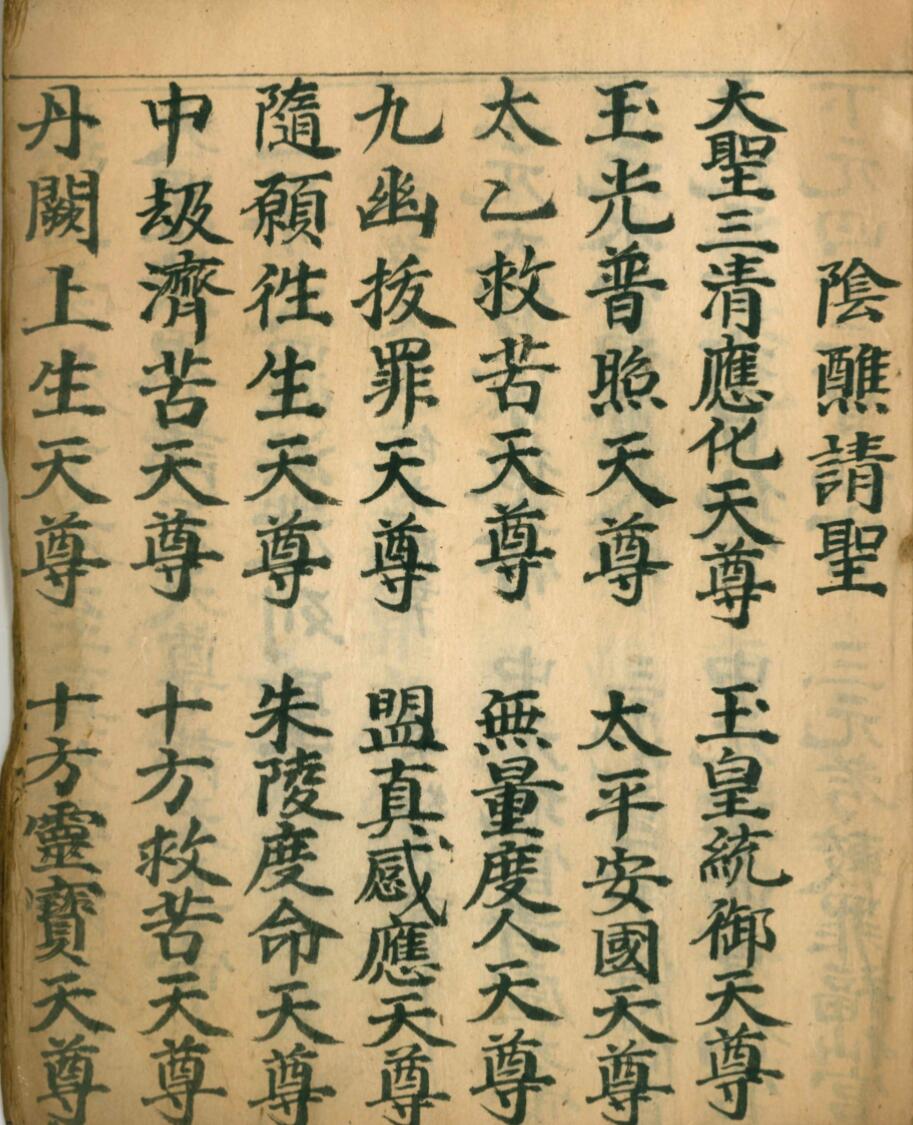 陰醮請聖
大聖三清應化天尊 玉皇統御天尊
玉光普照天尊 太平安國天尊
太乙救苦天尊 無量度人天尊
九幽拔罪天尊 盟真感應天尊
隨願徃生天尊 朱陵度命天尊
中刼濟苦天尊 十方救苦天尊
丹闕上生天尊 十方靈寶天尊